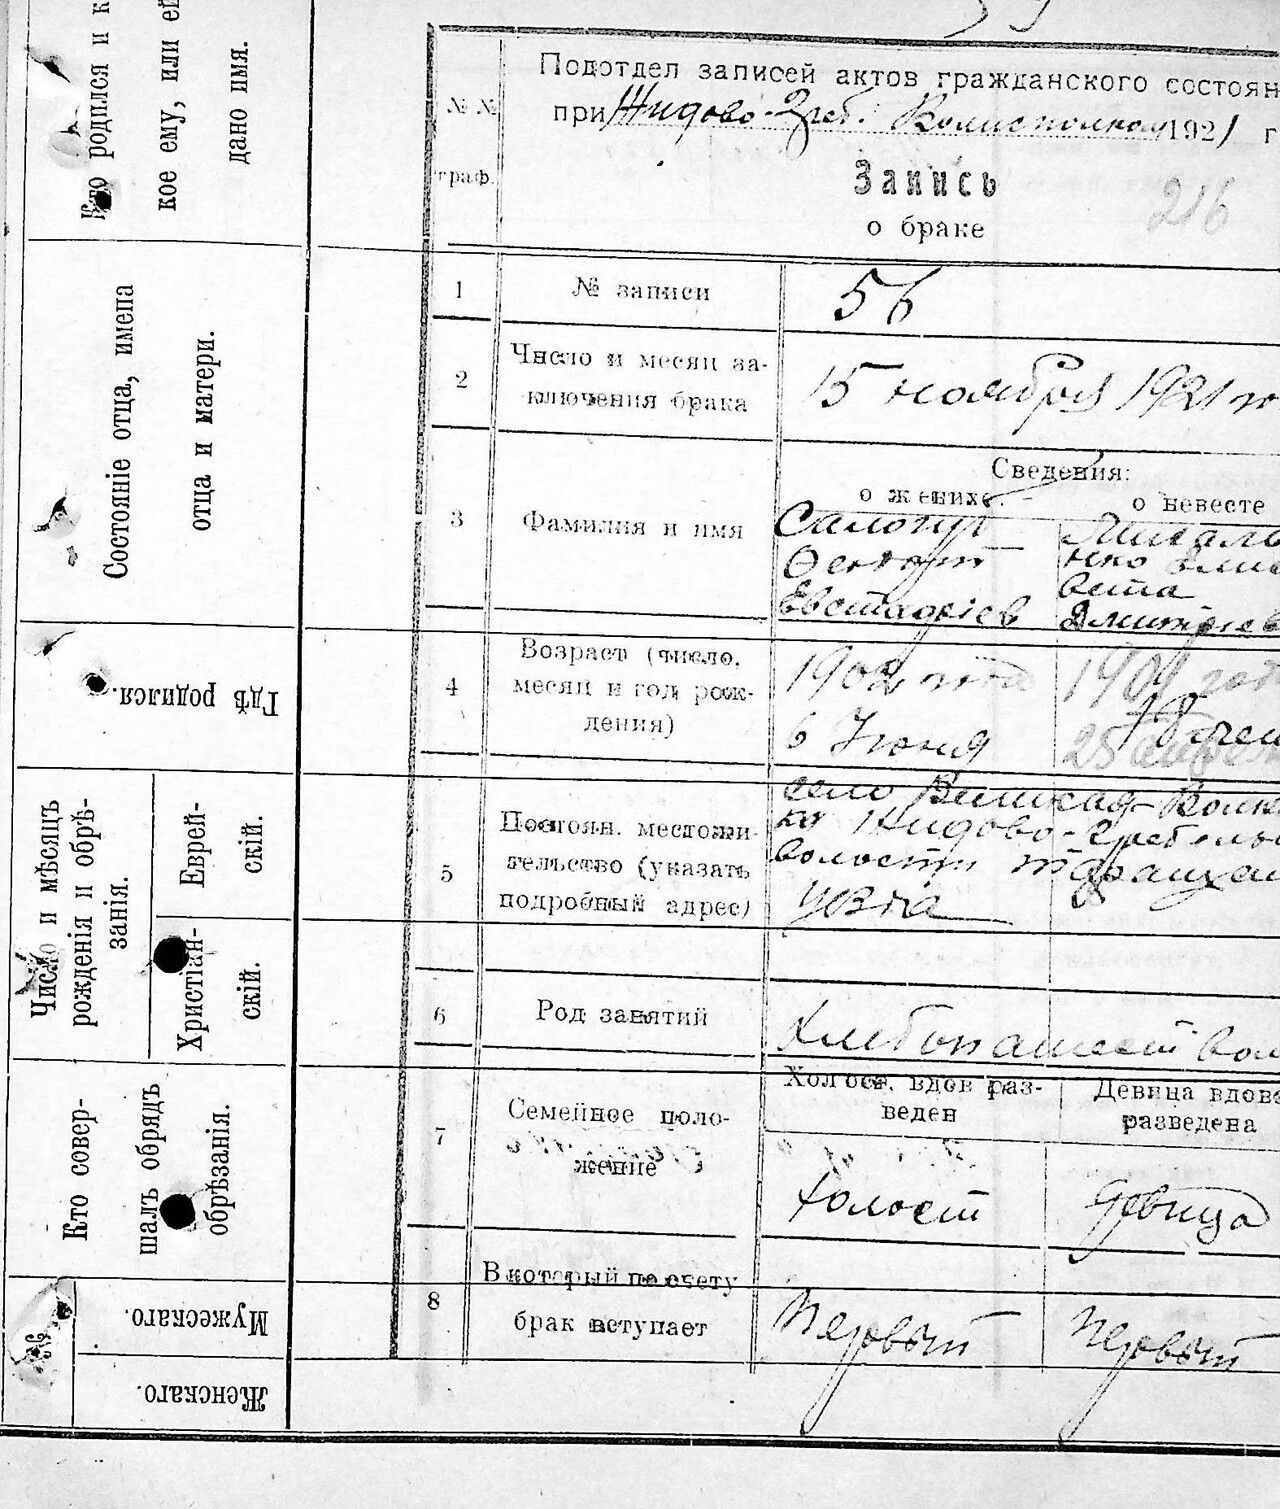 Кто родился и к
кое ему, или ей
дано имя.
Состояніе отца, имена
отца и матери.
Гдѣ родился.
Число и мѣсяцъ
рожденія и обрѣ-
занія.
Еврей-
скій.
Христіан-
скій.
Кто совер-
шалъ обрядъ
обрѣзанія.
№
Мужескаго.
Женскаго.
№№
граф.
Подотдел записей актов гражданского состоян
при Жидово-Греб. Волисполком 1921 г
Запись
о браке
216
1 № записи 56
2 Число и месяц за-
ключения брака
15 ноября 1921 го
Сведения:
о женихе. о невесте
3 Фамилия и имя
Феодот
Евстафіев
вета
Дмитріев
4 Возраст (число,
месяц и год рож-
дения)
1902 года
6 Июня
190 год
18 лет
25
5 Постоян. местожи-
тельство (указать
подробный адрес)
село Великая-Вовн
ка Жидово-Гребельс
волости Таращан
уезда
6 Род занятий
Хлебопашество
7 Семейное поло-
жение
Холост, вдов раз-
веден
Девица вдова
разведена
холост
девица
8 В который по счету
брак вступает
первый
первый